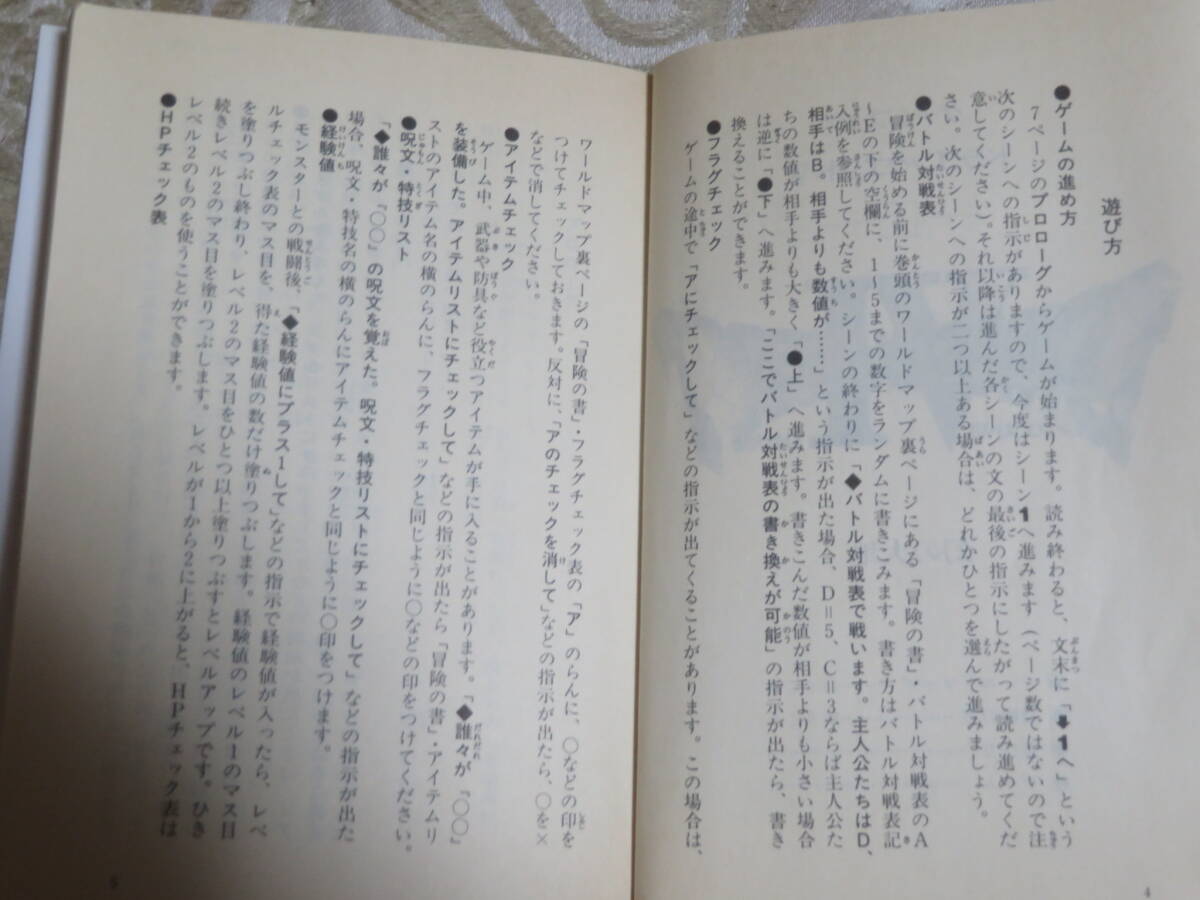 遊び方
●ゲームの進め方
7ページのプロローグからゲームが始まります。読み終わると、文末に「➡1へ」という
次のシーンへの指示がありますので、今度はシーン1へ進みます（ページ数ではないので注
意してください）。それ以降は進んだ各シーンの文の最後の指示にしたがって読み進めてくだ
さい。次のシーンへの指示が二つ以上ある場合は、どれかひとつを選んで進みましょう。
●バトル対戦表
冒険を始める前に巻頭のワールドマップ裏ページにある「冒険の書」・バトル対戦表のA
〜Eの下の空欄に、1〜5までの数字をランダムに書きこみます。書き方はバトル対戦表記
入例を参照してください。シーンの終わりに「◆バトル対戦表で戦います。主人公たちはD、
相手はB。相手よりも数値が……」という指示が出た場合、D＝5、C＝3ならば主人公た
ちの数値が相手よりも大きく「●上」へ進みます。書きこんだ数値が相手よりも小さい場合
は逆に「●下」へ進みます。「ここでバトル対戦表の書き換えが可能」の指示が出たら、書き
換えることができます。
●フラグチェック
ゲームの途中で「アにチェックして」などの指示が出てくることがあります。この場合は、
4
ワールドマップ裏ページの「冒険の書」・フラグチェック表の「ア」のらんに、○などの印を
つけてチェックしておきます。反対に、「アのチェックを消して」などの指示が出たら、○を×
などで消してください。
●アイテムチェック
ゲーム中、武器や防具など役立つアイテムが手に入ることがあります。「◆誰々が「○○」
を装備した。アイテムリストにチェックして」などの指示が出たら「冒険の書」・アイテムリ
ストのアイテム名の横のらんに、フラグチェックと同じように○などの印をつけてください。
●呪文・特技リスト
「◆誰々が「○○」の呪文を覚えた。呪文・特技リストにチェックして」などの指示が出た
場合、呪文・特技名の横のらんにアイテムチェックと同じように○印をつけます。
●経験値
モンスターとの戦闘後、「◆経験値にプラス1して」などの指示で経験値が入ったら、レベ
ルチェック表のマス目を、得た経験値の数だけ塗りつぶします。経験値のレベル1のマス目
を塗りつぶし終わり、レベル2のマス目をひとつ以上塗りつぶすとレベルアップです。ひき
続きレベル2のマス目を塗りつぶします。レベルが1から2に上がると、HPチェック表は
レベル2のものを使うことができます。
●HPチェック表
5